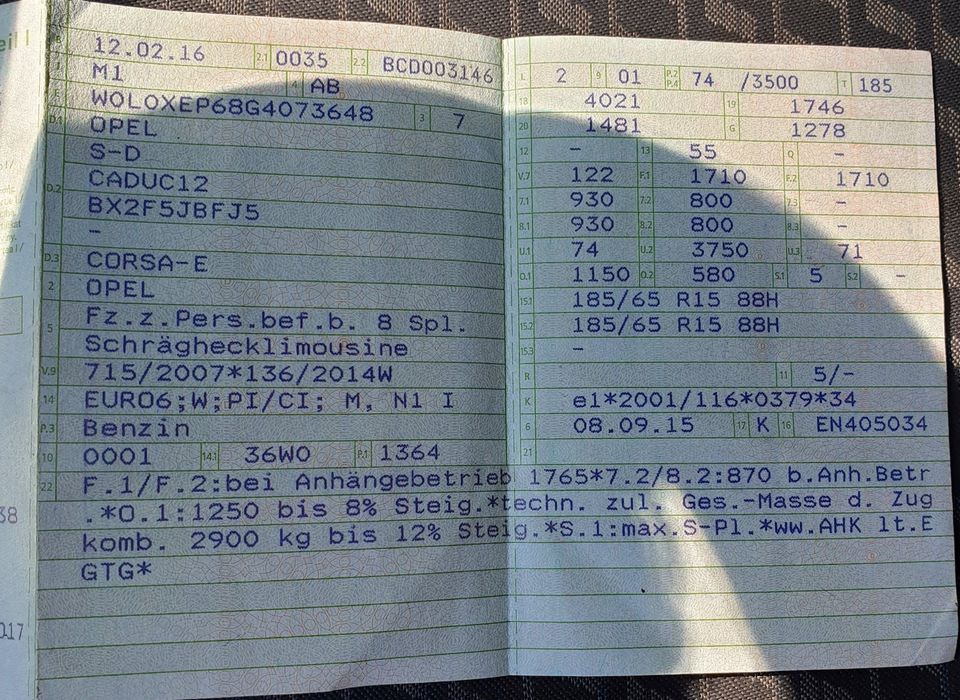 12.02.16 2.1 0035 2.2 BCD003146
J M1 4 AB
E WOLOXEP68G4073648 3 7
D.1 OPEL
S-D
D.2 CADUC12
BX2F5JBFJ5
-
D.3 CORSA-E
2 OPEL
5 Fz.z.Pers.bef.b. 8 Spl.
Schräghecklimousine
V.9 715/2007*136/2014W
14 EURO6;W;PI/CI; M, N1 I
P.3 Benzin
10 0001 14.1 36W0 P.1 1364
L 2 9 01 P.2 P.4 74 /3500 T 185
18 4021 19 1746
20 1481 G 1278
12 - 13 55 Q -
V.7 122 F.1 1710 F.2 1710
7.1 930 7.2 800 7.3 -
8.1 930 8.2 800 8.3 -
U.1 74 U.2 3750 U.3 71
O.1 1150 O.2 580 S.1 5 S.2 -
15.1 185/65 R15 88H
15.2 185/65 R15 88H
15.3 -
R 11 5/-
K e1*2001/116*0379*34
6 08.09.15 17 K 16 EN405034
21
22 F.1/F.2:bei Anhängebetrieb 1765*7.2/8.2:870 b.Anh.Betr
.*O.1:1250 bis 8% Steig.*techn. zul. Ges.-Masse d. Zug
komb. 2900 kg bis 12% Steig.*S.1:max.S-Pl.*ww.AHK lt.E
GTG*